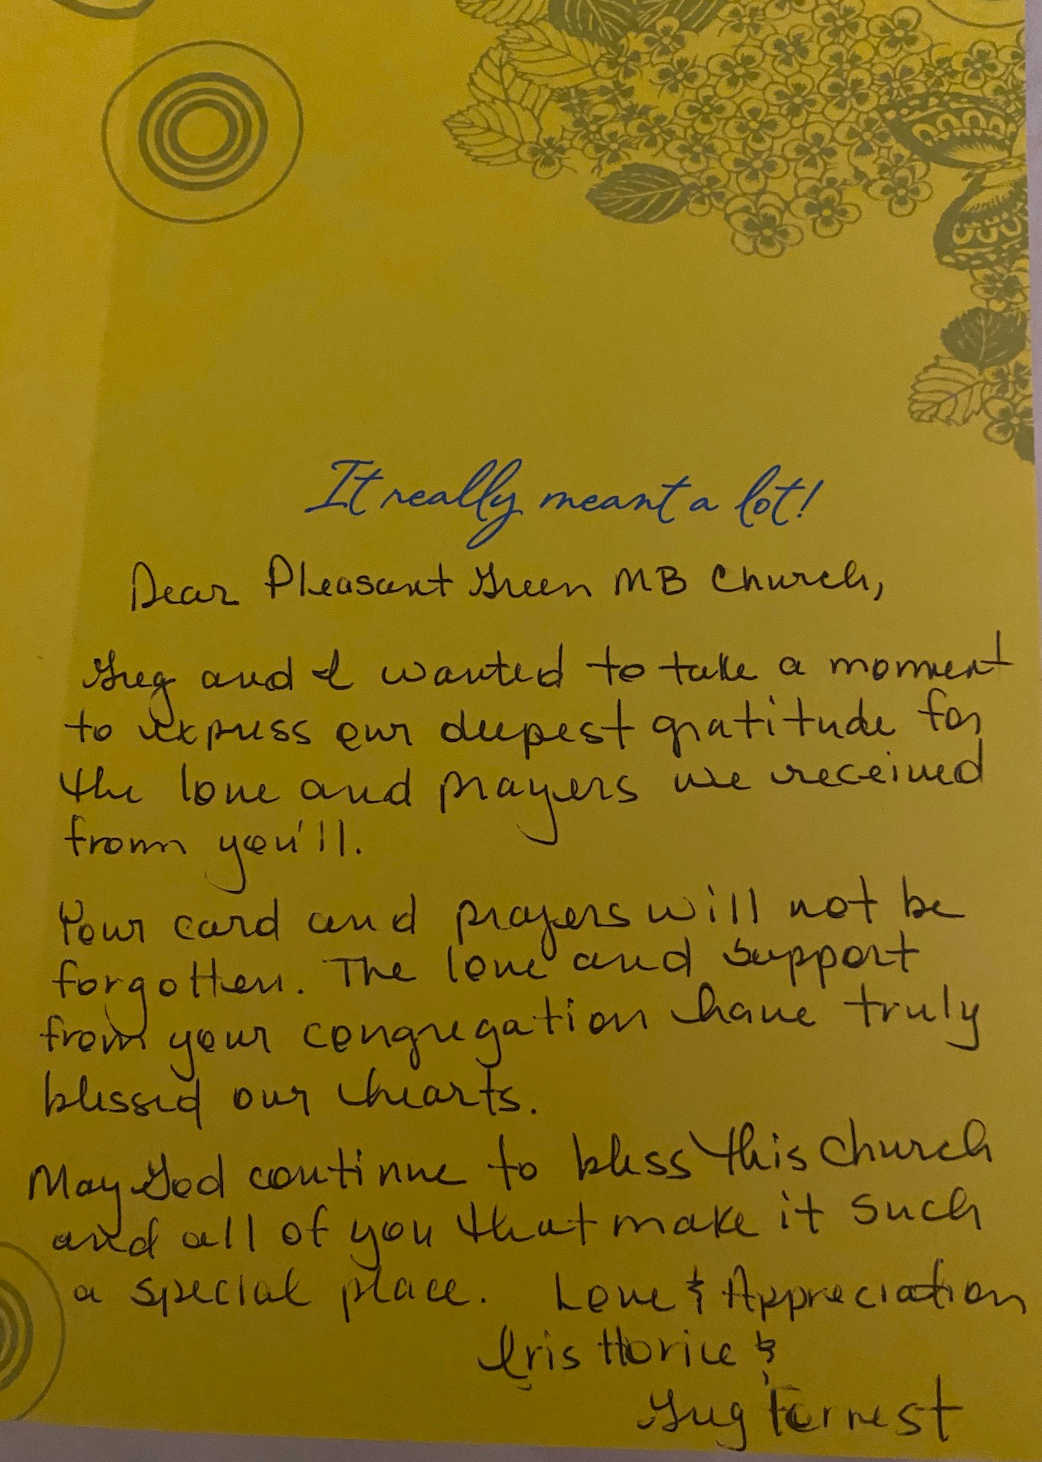 It really meant a lot!
Dear Pleasant Green MB Church,
Greg and I wanted to take a moment
to express our deepest gratitude for
the love and prayers we received
from you'll.
Your card and prayers will not be
forgotten. The love and support
from your congregation have truly
blessed our hearts.
May God continue to bless this church
and all of you that make it such
a special place. Love & Appreciation
Iris Horice &
Greg Forrest